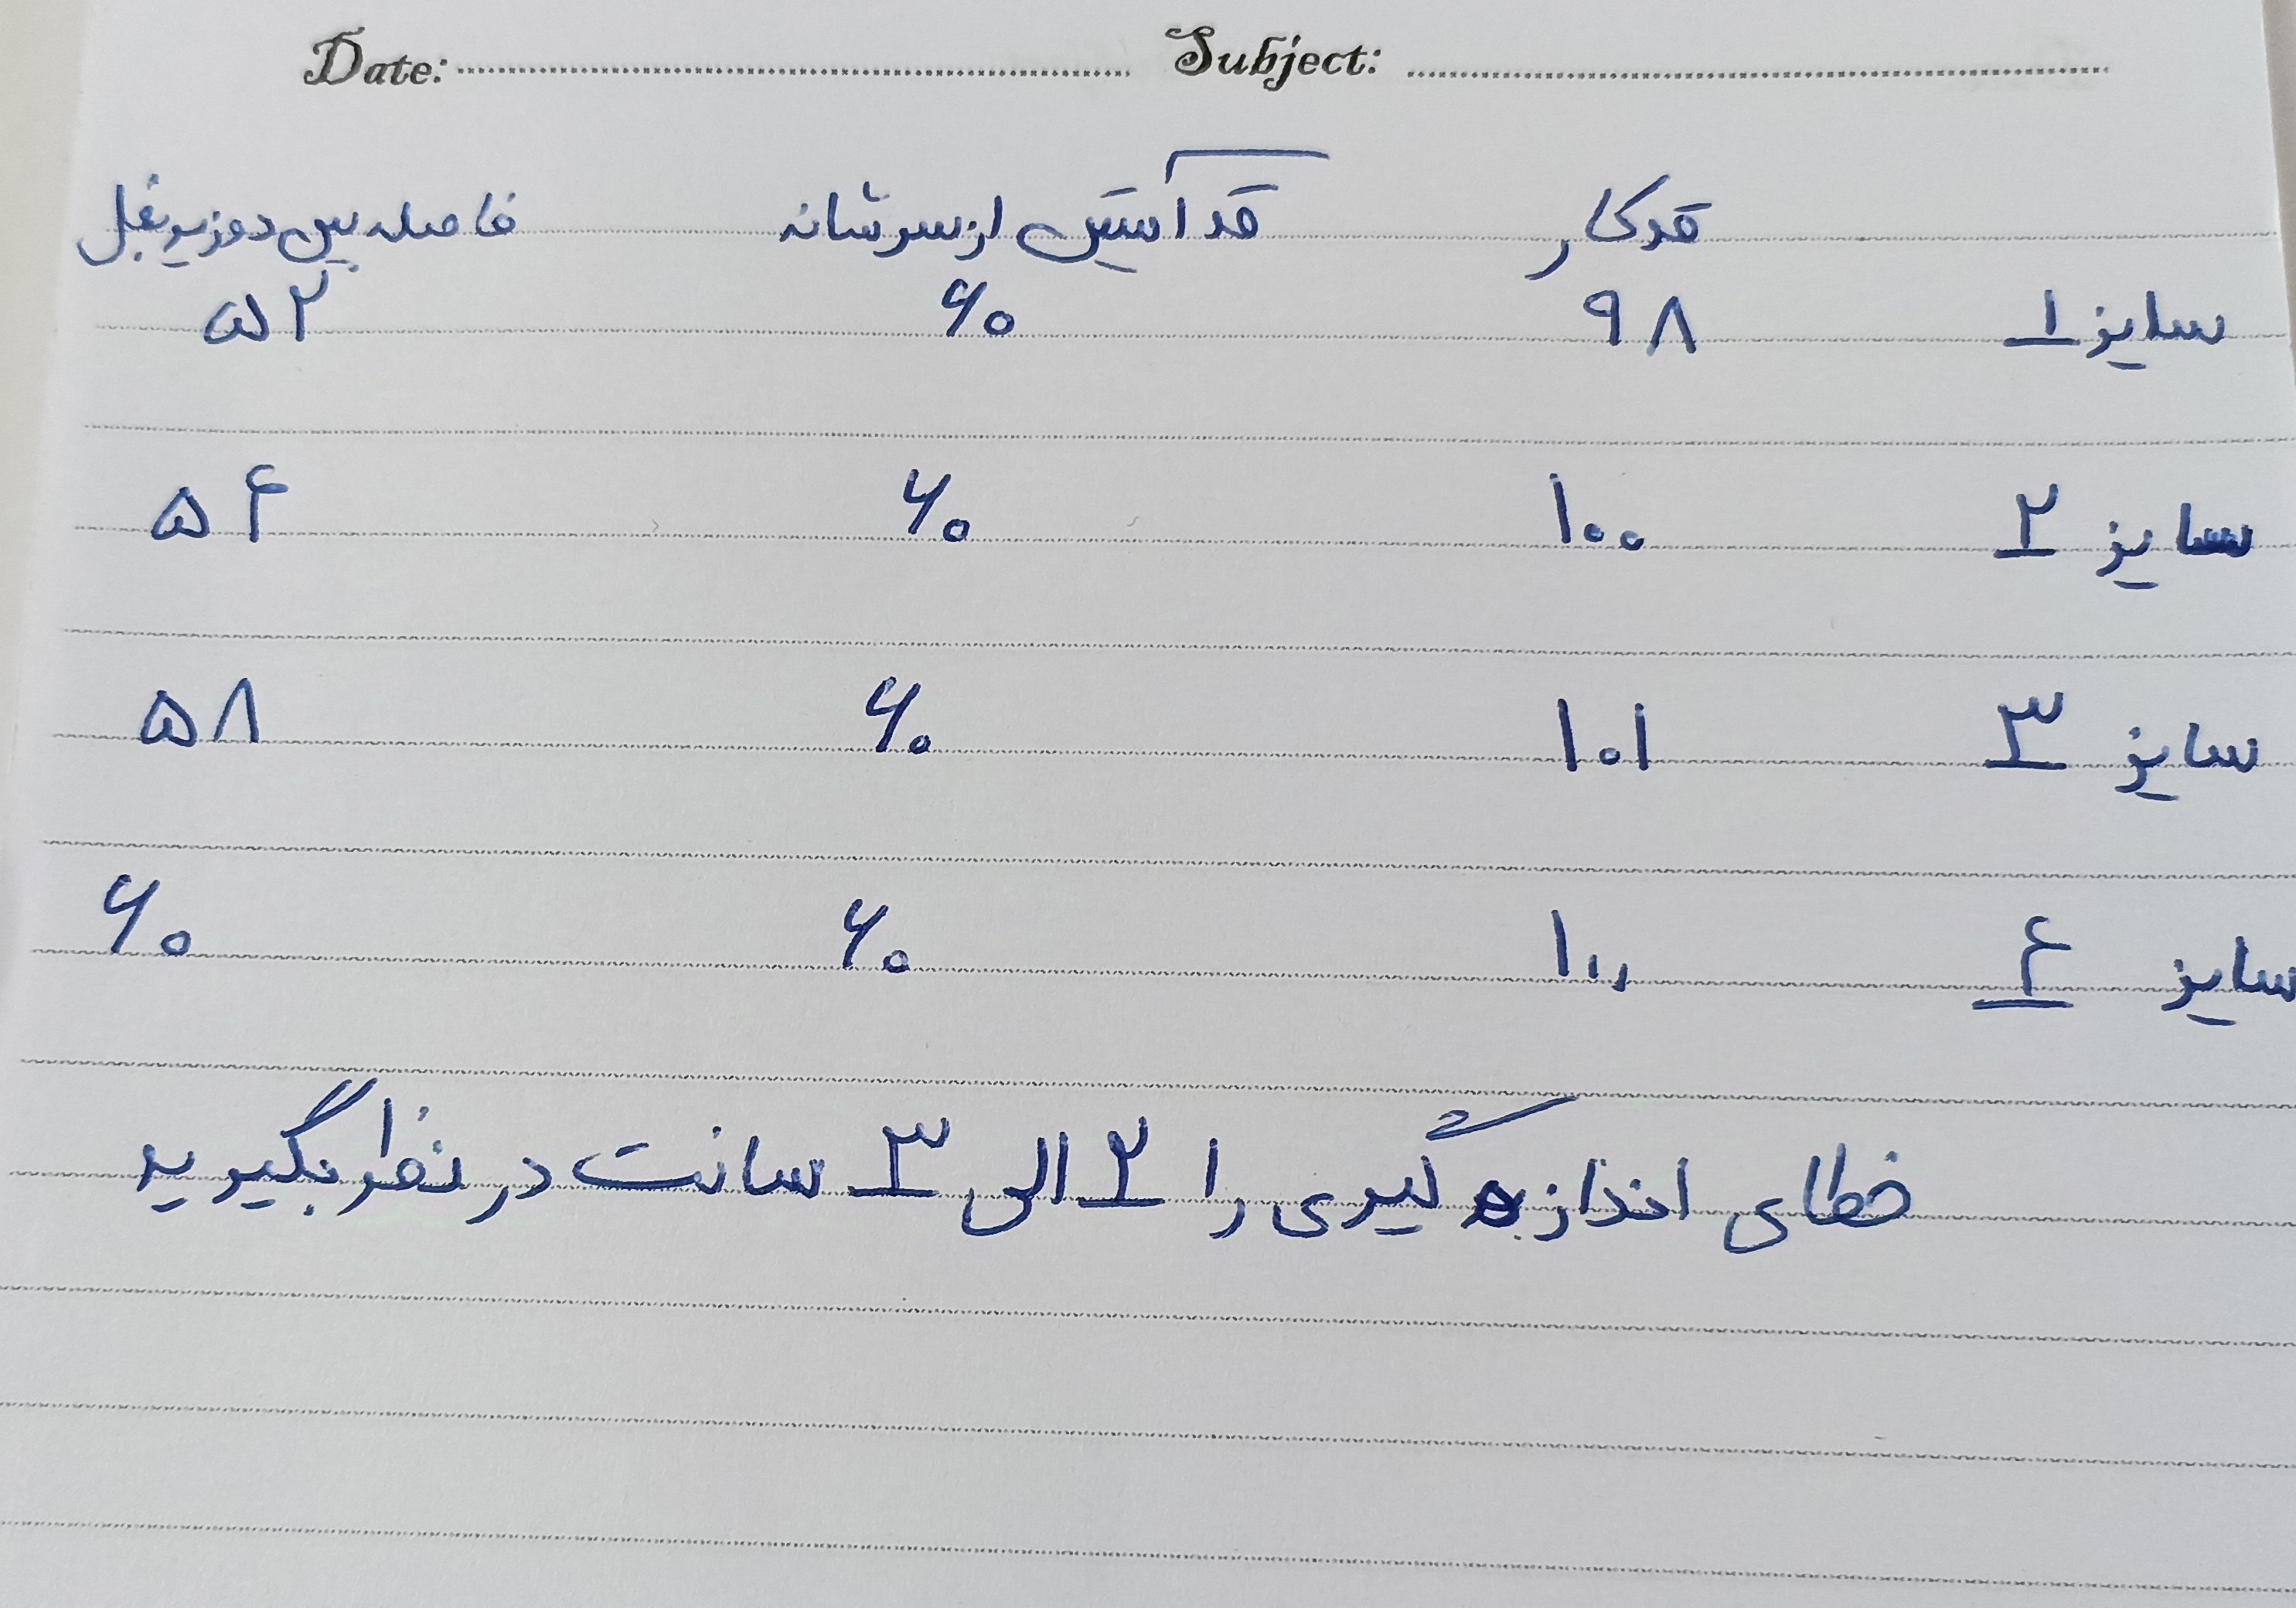 Date: Subject:
قد کار قد آستین از سرشانه فاصله بین دو زیر بغل
سایز ۱ ۹۸ ۶۰ ۵۲
سایز ۲ ۱۰۰ ۶۰ ۵۴
سایز ۳ ۱۰۱ ۶۰ ۵۸
سایز ۴ ۱۰۰ ۶۰ ۶۰
خطای اندازه گیری را ۲ الی ۳ سانت در نظر بگیرید